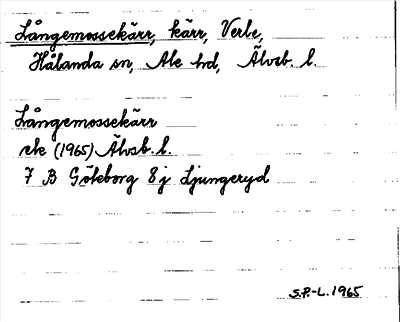 Långemossekärr, kärr, Verle,
Hålanda sn, Ale hd, Älvsb. l.
Långemossekärr
ek (1965) Älvsb. l.
7 B Göteborg 8 j Ljungeryd
S.P.-L. 1965